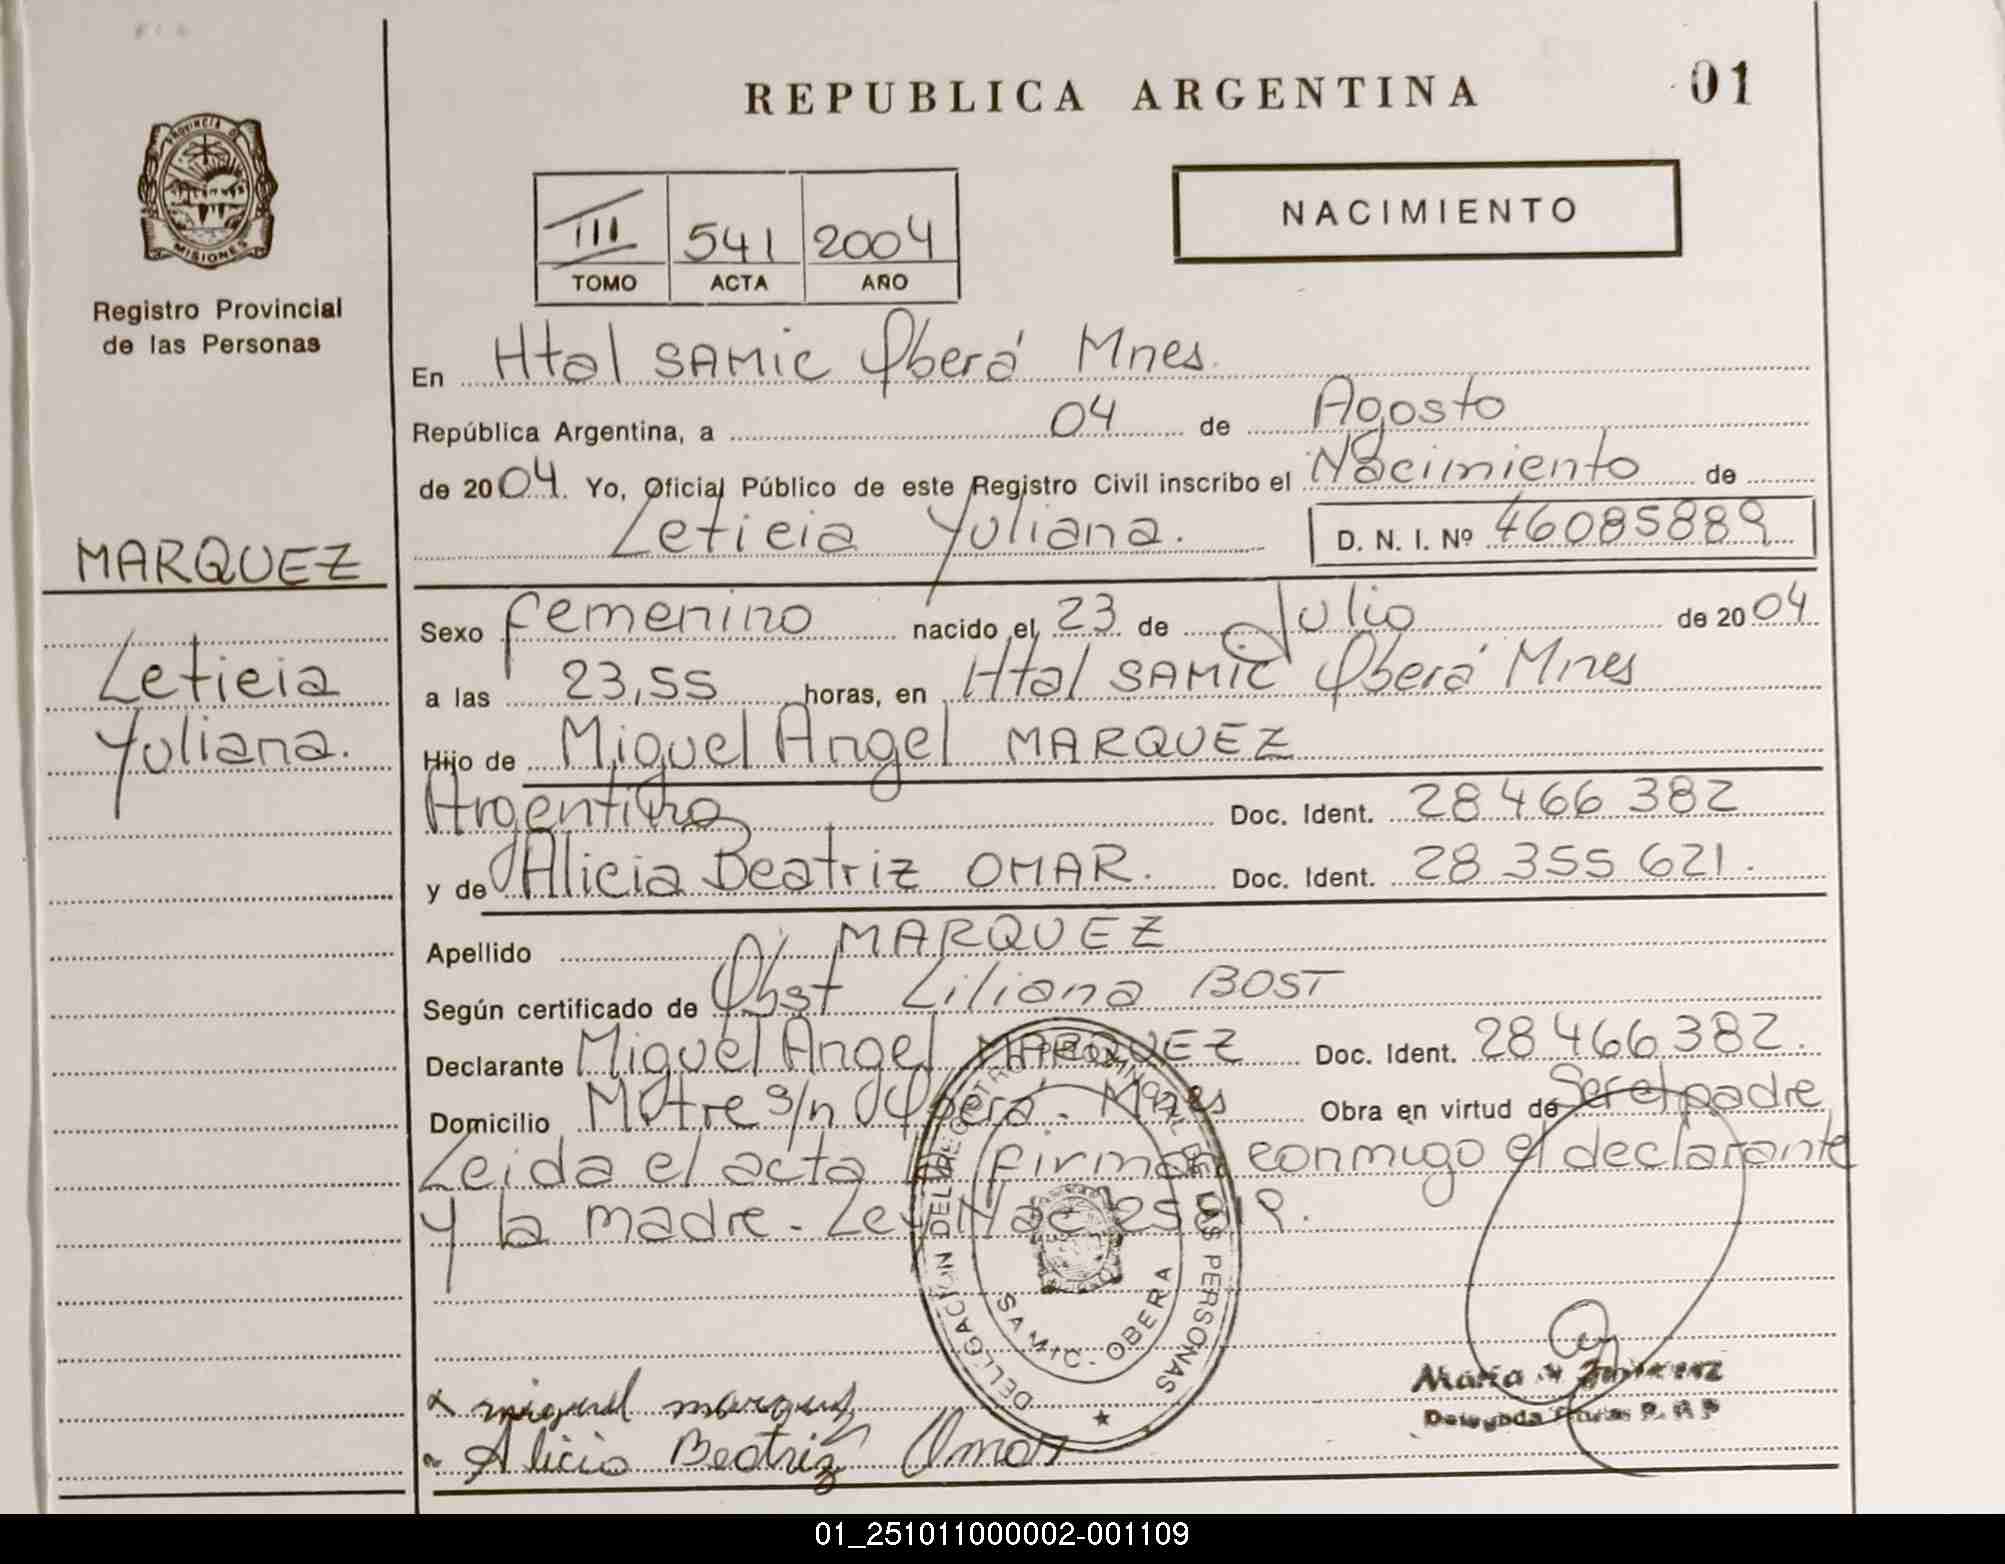 REPUBLICA ARGENTINA
01
PROVINCIA DE
MISIONES
Registro Provincial
de las Personas
III 541 2004
TOMO ACTA AÑO
NACIMIENTO
En Htal SAMIC Oberá Mnes.
República Argentina, a 04 de Agosto
de 2004. Yo, Oficial Público de este Registro Civil inscribo el Nacimiento de
Leticia Yuliana.
D. N. I. Nº 46085889
MARQUEZ
Leticia
Yuliana.
Sexo femenino nacido el 23 de Julio de 2004
a las 23,55 horas, en Htal SAMIC Oberá Mnes
Hijo de Miguel Angel MARQUEZ
Argentino Doc. Ident. 28 466 382
y de Alicia Beatriz OMAR. Doc. Ident. 28 355 621.
Apellido MARQUEZ
Según certificado de Obst Liliana BOST
Declarante Miguel Angel MARQUEZ Doc. Ident. 28 466 382.
Domicilio Mitre s/n Oberá. Mnes Obra en virtud de Ser el padre
Leida el acta la firman conmigo el declarante
y la madre. Ley Nac 25819.
DELEGACION DEL REGISTRO PROVINCIAL DE LAS PERSONAS
SAMIC - OBERA
miguel marquez
Alicia Beatriz Omar
Maria
Delegada
01_251011000002-001109